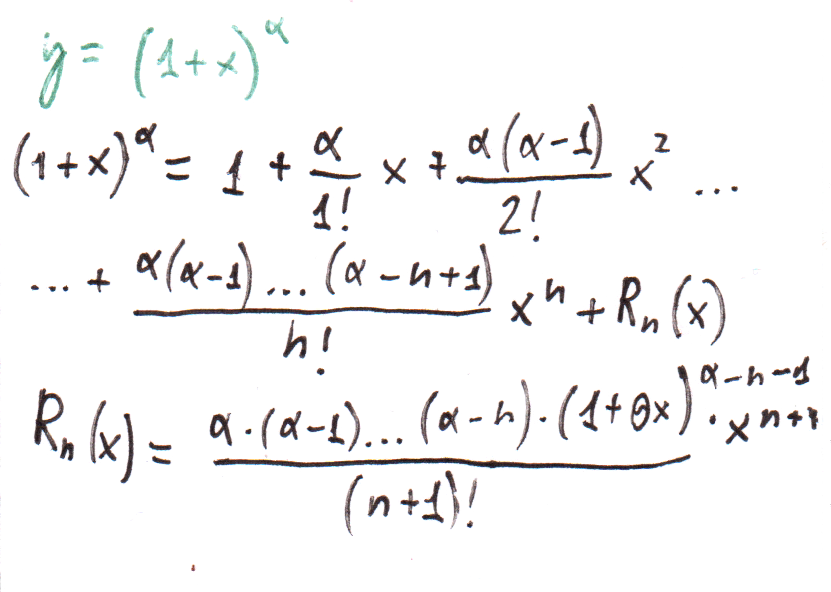 y = (1+x)^α
(1+x)^α = 1 + α/1! x + α(α-1)/2! x² ...
... + α(α-1)...(α-n+1)/n! xⁿ + Rₙ(x)
Rₙ(x) = α·(α-1)...(α-n)·(1+θx)^(α-n-1)/(n+1)! · x^(n+1)